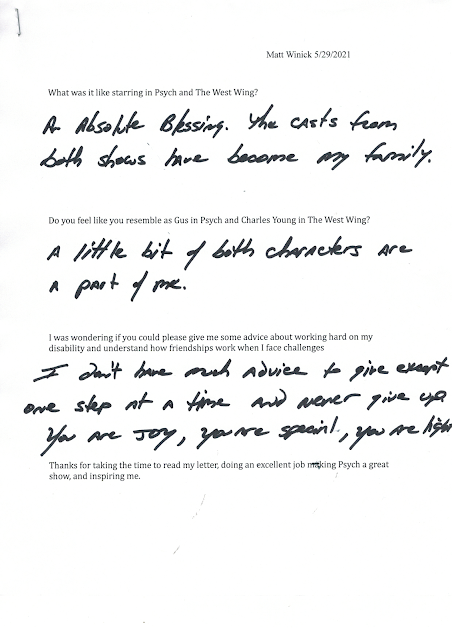 Matt Winick 5/29/2021
What was it like starring in Psych and The West Wing?
A Absolute Blessing. The casts from
both shows have become my family.
Do you feel like you resemble as Gus in Psych and Charles Young in The West Wing?
A little bit of both characters are
a part of me.
I was wondering if you could please give me some advice about working hard on my
disability and understand how friendships work when I face challenges
I don't have much advice to give except
one step at a time and never give up
You are Joy, you are special, you are light
Thanks for taking the time to read my letter, doing an excellent job making Psych a great
show, and inspiring me.